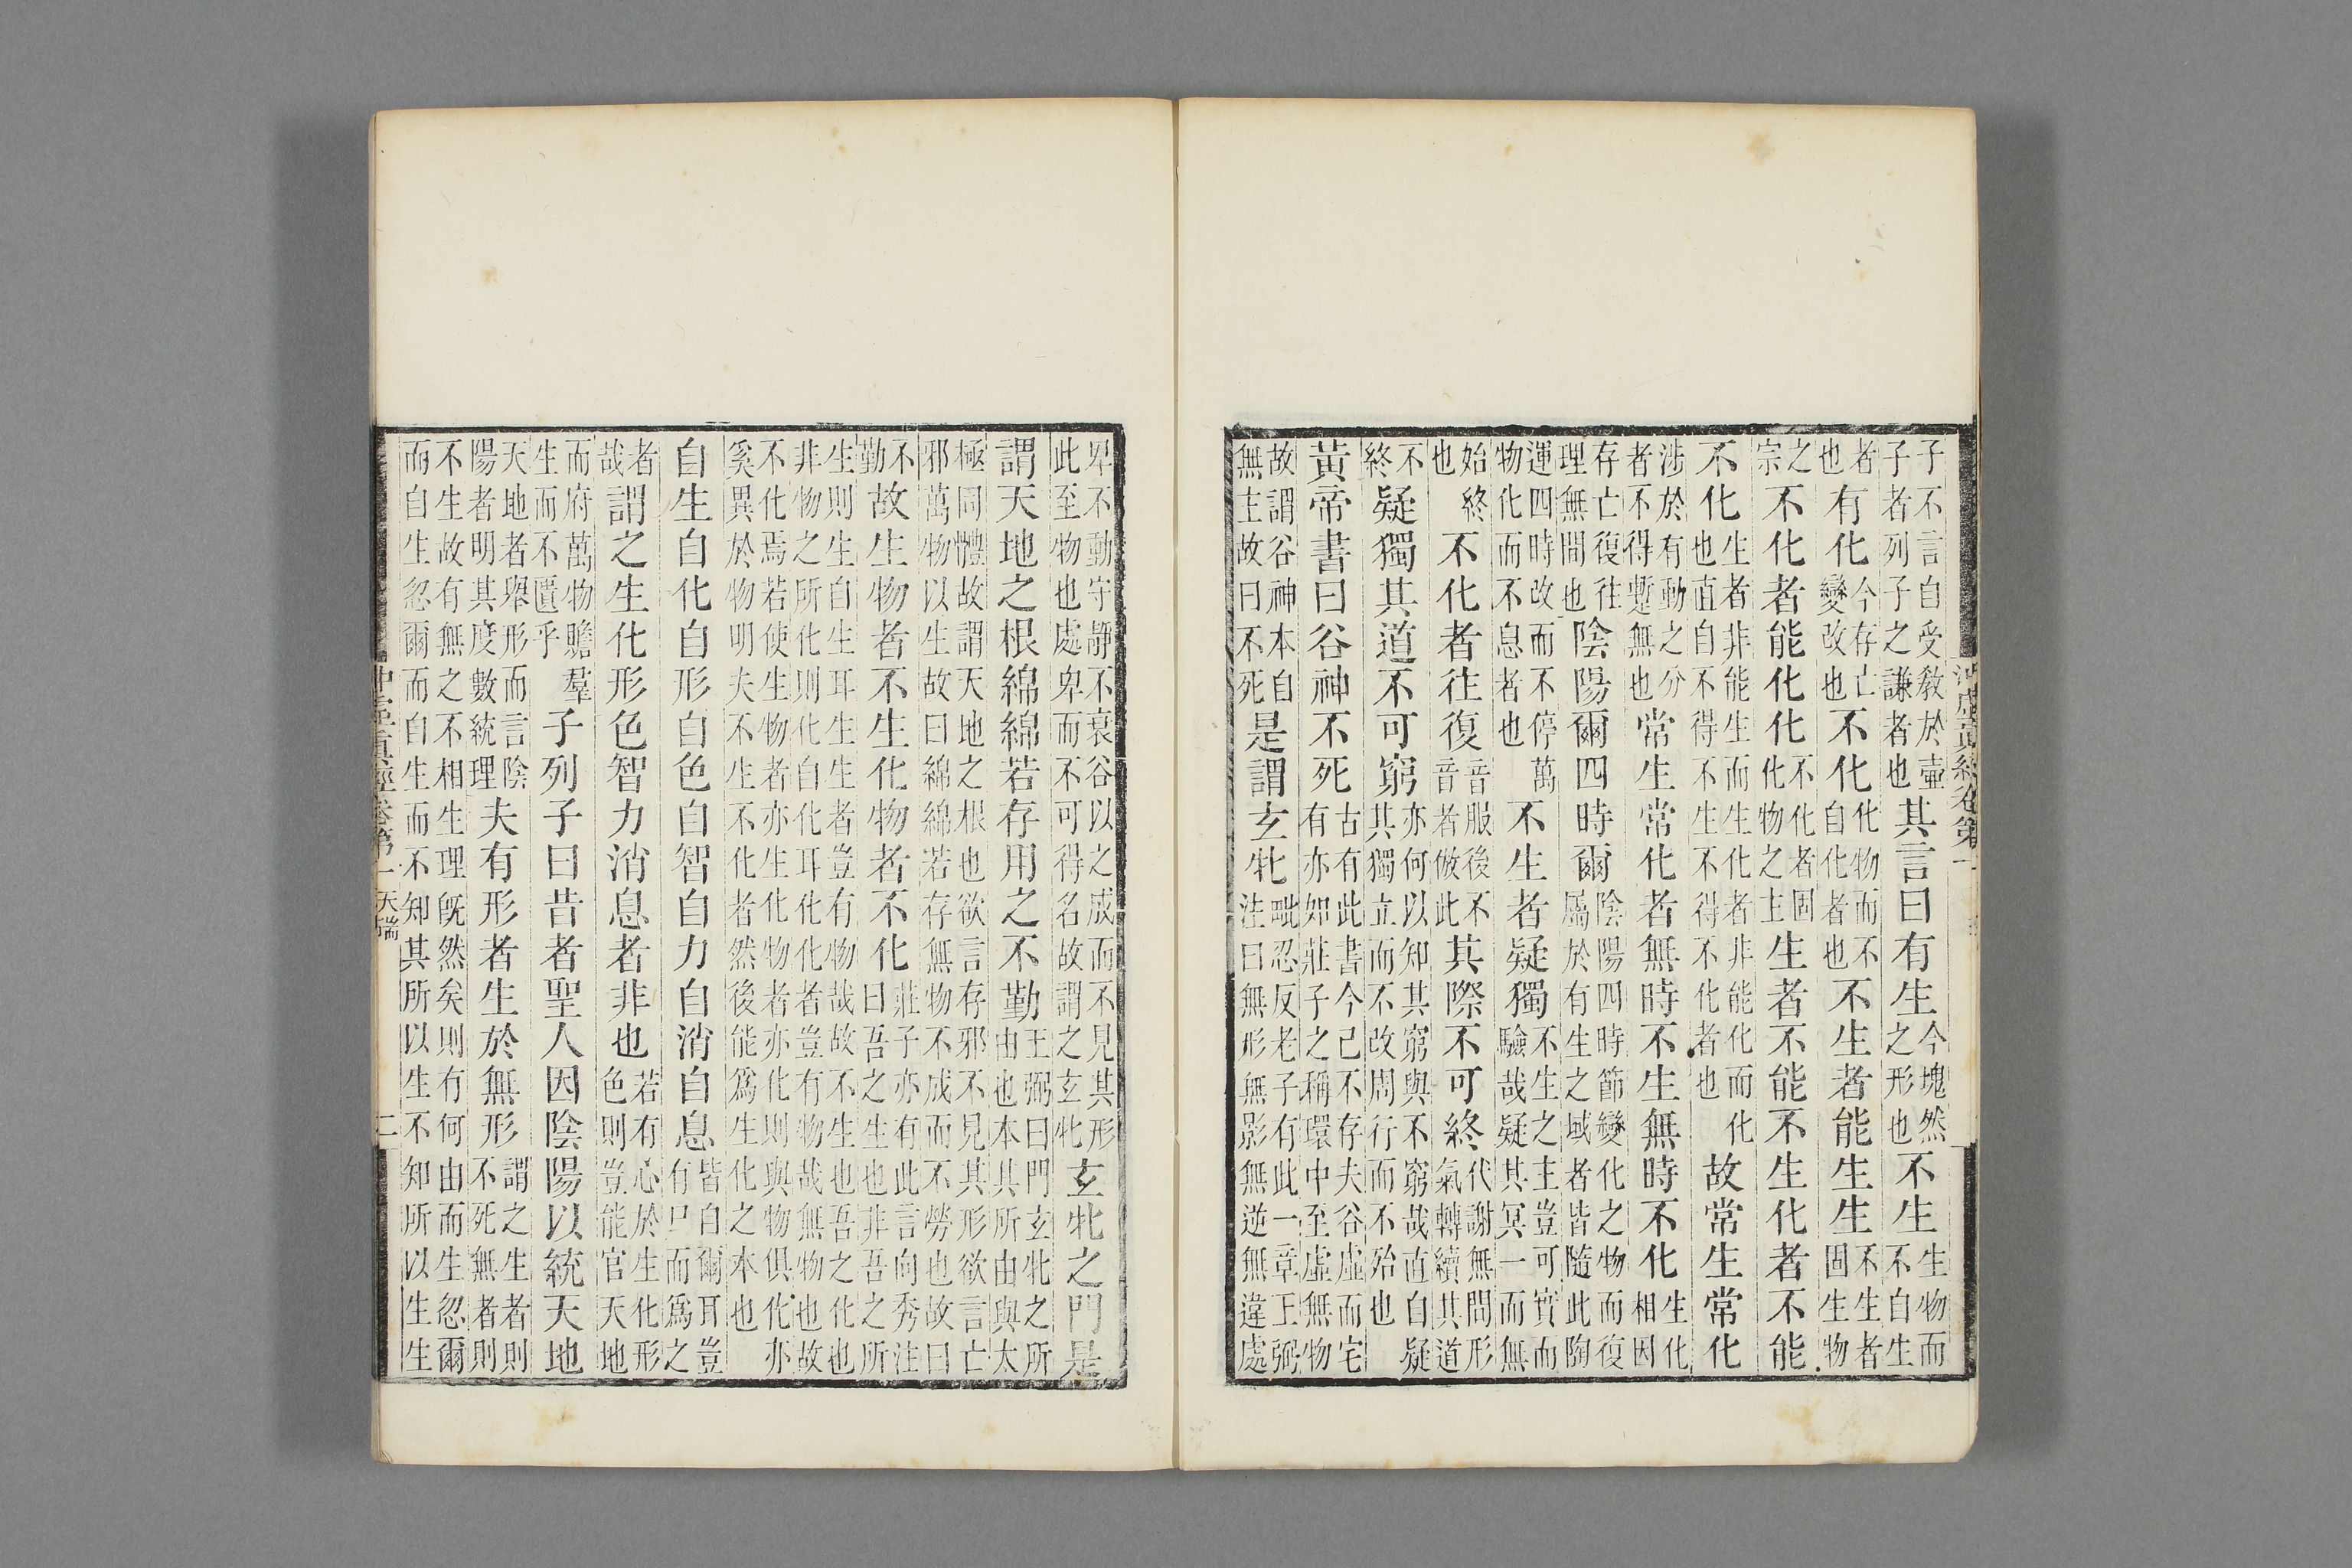 子不言自受敎於壷子者列子之謙者也其言曰有生今塊然之形也不生生物而不自生
者也有化今存亡變改也不化化物而不自化者也不生者能生生不生者固生物
之宗不化者能化化不化者固化物之主生者不能不生化者不能
不化生者非能生而生化者非能化而化也直自不得不生不得不化者也故常生常化
涉於有動之分者不得蹔無也常生常化者無時不生無時不化生化相因
存亡復往理無間也陰陽爾四時爾陰陽四時節變化之物而復屬於有生之域者皆隨此陶
運四時改而不停萬物化而不息者也不生者疑獨不生之主豈可實而驗哉疑其冥一而無
始終也不化者往復音服後不音者倣此其際不可終代謝無間形氣轉續其道
不終疑獨其道不可窮亦何以知其窮與不窮哉直自疑其獨立而不改周行而不殆也
黃帝書曰谷神不死古有此書今已不存夫谷虛而宅有亦如莊子之稱環中至虛無物
故謂谷神本自無主故曰不死是謂玄牝毗忍反老子有此一章王弼注曰無形無影無逆無違處
卑不動守靜不衰谷以之成而不見其形此至物也處卑而不可得名故謂之玄牝玄牝之門是
謂天地之根綿綿若存用之不勤王弼曰門玄牝之所由也本其所由與太
極同體故謂天地之根也欲言存邪不見其形欲言亡邪萬物以生故曰綿綿若存無物不成而不勞也故曰
不勤故生物者不生化物者不化莊子亦有此言向秀注曰吾之生也非吾之所
生則生自生耳生生者豈有物哉故不生也吾之化也非物之所化則化自化耳化化者豈有物哉無物也故
不化焉若使生物者亦生化物者亦化則與物俱化亦奚異於物明夫不生不化者然後能爲生化之本也
自生自化自形自色自智自力自消自息皆自爾耳豈有尸而爲之
者哉謂之生化形色智力消息者非也若有心於生化形色則豈能官天地
而府萬物贍羣生而不匱乎子列子曰昔者聖人因陰陽以統天地
天地者舉形而言陰陽者明其度數統理夫有形者生於無形謂之生者則不死無者則
不生故有無之不相生理旣然矣則有何由而生忽爾而自生忽爾而自生而不知其所以生不知所以生生
卷第一 天瑞 二